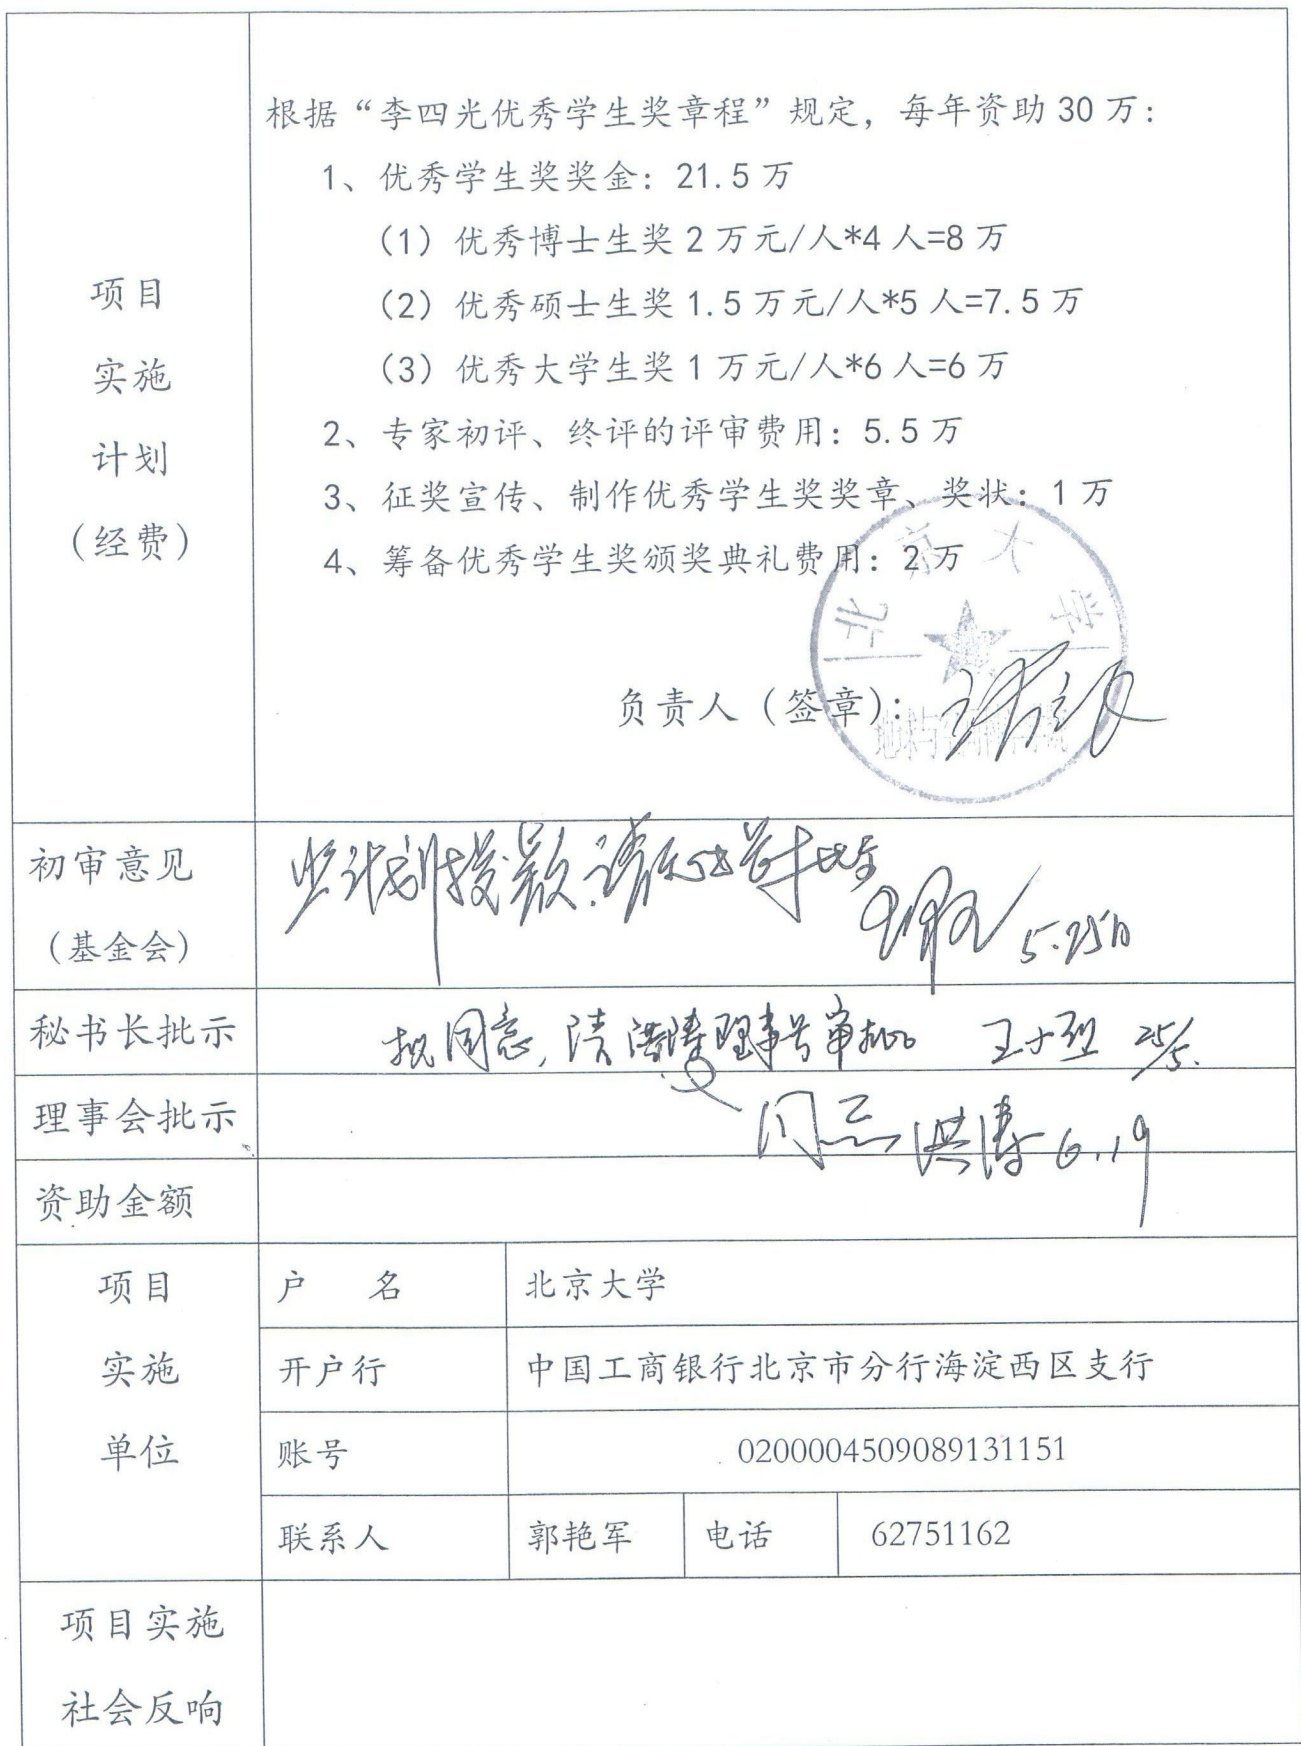 根据“李四光优秀学生奖章程”规定，每年资助30万：
1、优秀学生奖奖金：21.5万
（1）优秀博士生奖2万元/人*4人=8万
（2）优秀硕士生奖1.5万元/人*5人=7.5万
（3）优秀大学生奖1万元/人*6人=6万
2、专家初评、终评的评审费用：5.5万
3、征奖宣传、制作优秀学生奖奖章、奖状：1万
4、筹备优秀学生奖颁奖典礼费用：2万
项目
实施
计划
（经费）
北京大学
地球与空间科学学院
负责人（签章）：
初审意见
（基金会）
计划拨款.请 批示
5.25日
秘书长批示
拟同意，请洪涛理事长审批 25/5.
理事会批示
同意 洪涛 6.19
资助金额
项目
实施
单位
户 名 北京大学
开户行 中国工商银行北京市分行海淀西区支行
账号 0200004509089131151
联系人 郭艳军 电话 62751162
项目实施
社会反响